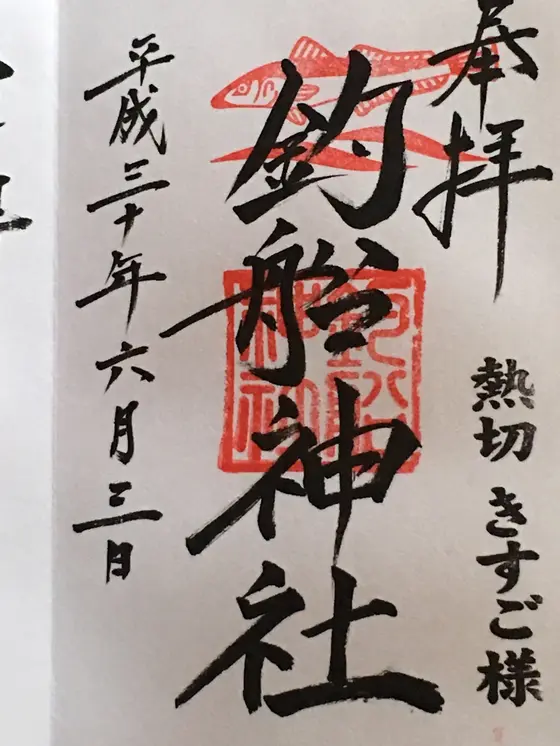 奉拝
熱切 きすご様
釣船神社
釣船
神社
平成三十年六月三日